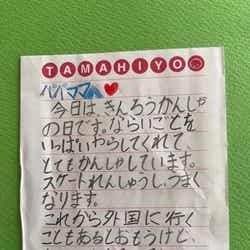 TAMAHIYO
パパママへ
今日は、きんろうかんしゃ
の日です。ならいごとを
いっぱいわらしてくれて、
とてもかんしゃしています。
スケートれんしゅうし、うまく
なります。
これから外国に行く
こともあるとおもうけど、